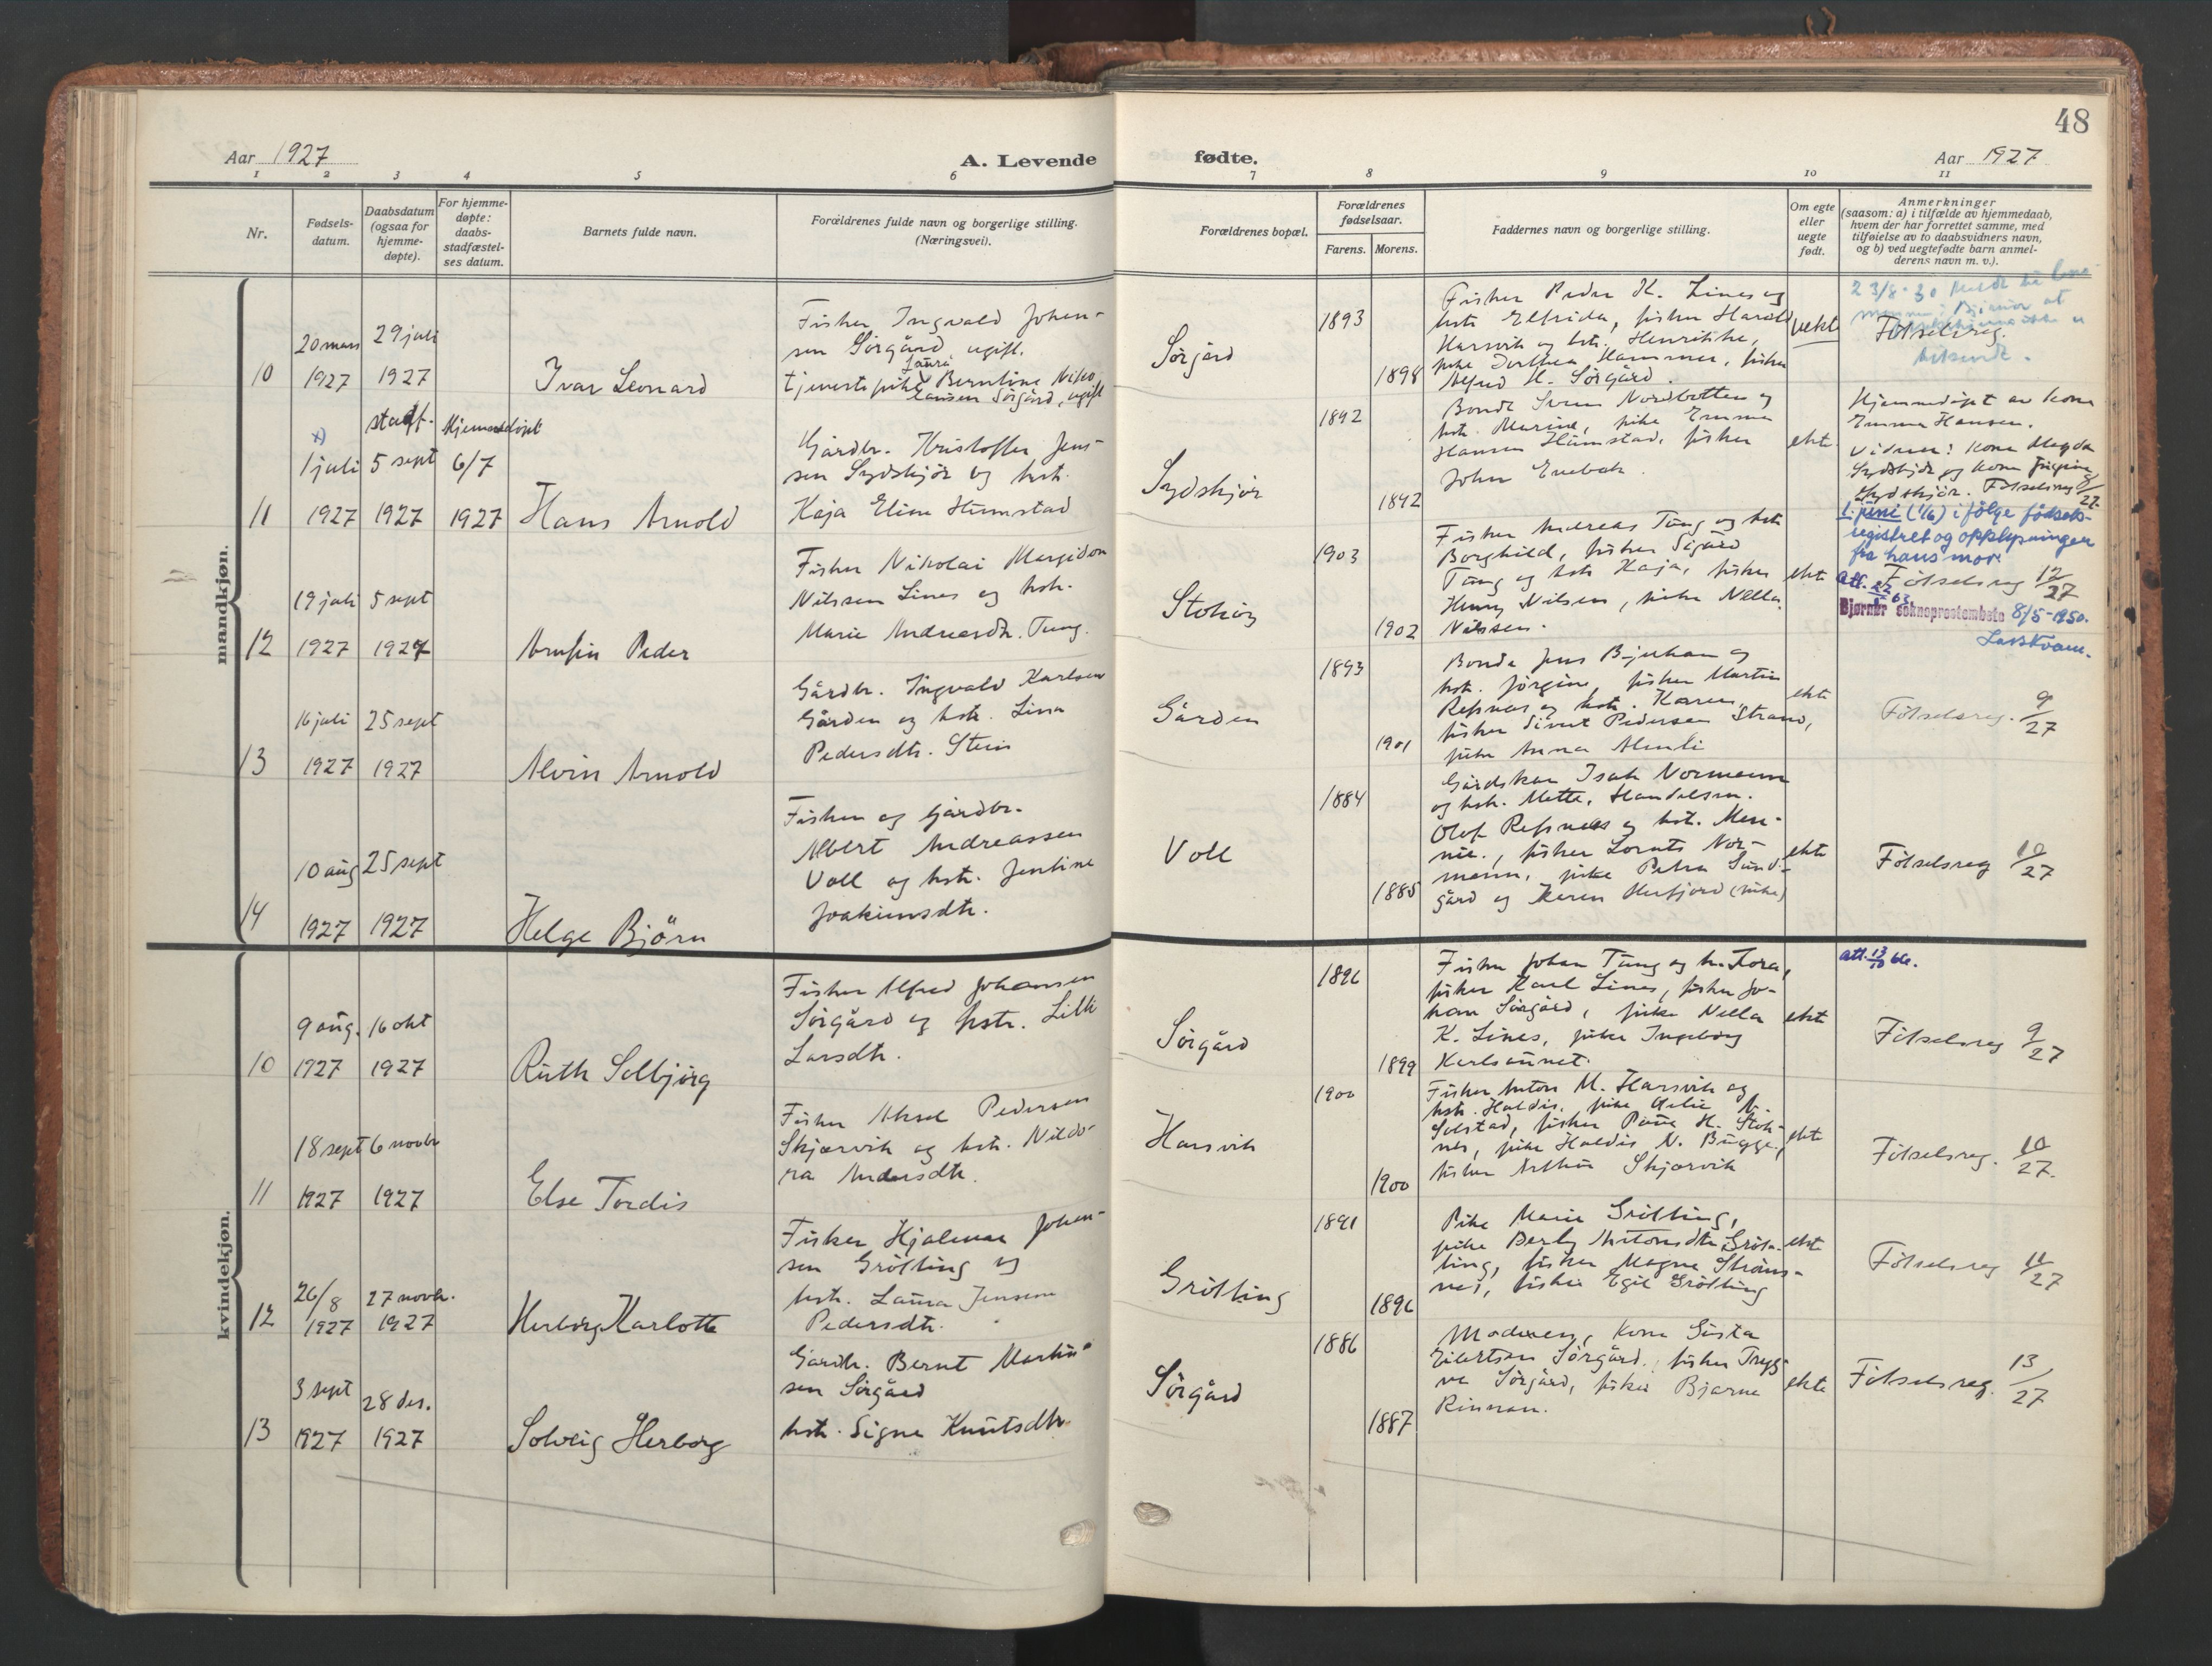 48
Aar 1927
A. Levende
fødte.
Aar 1927
1 2 3 4 5 6
7 8 9 10 11
Nr.
Fødsels-
datum.
Daabsdatum
(ogsaa for
hjemme-
døpte).
For hjemme-
døpte:
daabs-
stadfæstel-
ses datum.
Barnets fulde navn.
Forældrenes fulde navn og borgerlige stilling.
(Næringsvei).
Forældrenes bopæl.
Forældrenes
fødselsaar.
Farens. Morens.
Faddernes navn og borgerlige stilling.
Om egte
eller
uegte
født.
Anmerkninger
(saasom: a) i tilfælde av hjemmedaab,
hvem der har forrettet samme, med
tilføielse av to daabsvidners navn,
og b) ved uegtefødte barn anmel-
derens navn m. v.).
mandkjøn.
10
20 mars
1927
29 juli
1927
Ivar Leonard
Fisker Ingvald Johan-
sen Sørgård, ugift.
Laura
tjenestepike Berntine Niko
laisen Sørgård, ugift
Sørgård
1893
1898
Fisker Peder K. Lines og
hstr. Elfrida, fisker Harald
Harsvik og hstr. Henrikke,
pike Dorthea Hammer, fisker
Alfred H. Sørgård.
uekte
23/8-30
Fötselsreg.
11
x)
1 juli
1927
stadf.
5 sept
1927
Hjemmedöpt
6/7
1927
Hans Arnold
Gårdbr. Kristoffer Jens-
sen Sydskjör og hstr.
Kaja Eline Humstad
Sydskjör
1892
1892
Bonde Sven Nordbotten og
hstr. Marine, pike Emma
Hansen Humstad, fisker
John Enebak.
ekte
Hjemmedöpt av kone
Emma Hansen.
Vidner: Kone Magda
Sydskjör og kone Jörgine
Sydskjör. Fötselsreg 8/27
1. juni (1/6) i følge fødsels-
registret og opplysninger
fra hans mor.
Bjørnør sokneprestembete 8/5-1950.
12
19 juli
1927
5 sept
1927
Arnfin Peder
Fisker Nikolai Margido
Nilssen Lines og hstr.
Marie Andreasdtr. Tung.
Stokøy
1903
1902
Fisker Andreas Tung og hstr
Borghild, fisker Sigurd
Tung og hstr Kaja, fisker
Henry Nilsen, pike Nella
Nilssen.
ekte
Fötselsreg 12/27
13
16 juli
1927
25 sept
1927
Alvin Arnold
Gårdbr. Ingvald Karlsen
Gården og hstr. Lina
Pedersdtr. Stein
Gården
1893
1901
Bonde Jens Bjerkan og
hstr. Jørgine, fisker Martin
Refsnes og hstr. Karen,
fisker Sivert Pedersen Strand,
pike Anna Almli
ekte
Fötselsreg. 9/27
14
10 aug
1927
25 sept
1927
Helge Björn
Fisker og gårdbr.
Albert Andreassen
Voll og hstr. Jentine
Joakimsdtr.
Voll
1884
1885
Gårdskar Isak Normann
og hstr. Mette, Handelsm.
Olof Refsnes og hstr. Men-
nie., fisker Lornts Nor-
mann, pike Petra Sund-
gård og Karen Herfjord (pike)
ekte
Fötselsreg 10/27
kvindekjøn.
10
9 aug.
1927
16 okt
1927
Ruth Solbjörg
Fisker Alfred Johansen
Sørgård og hstr. Lilli
Larsdtr.
Sørgård
1896
1899
Fisker Johan Tung og h. Tora,
fisker Karl Lines, fisker Jo-
han Sørgård, pike Nella
K. Lines, pike Ingeborg
Karlsaunet.
ekte
att. 13/10 66.
Fötselsreg 9/27
11
18 sept
1927
6 novbr
1927
Else Tordis
Fisker Aksel Pedersen
Skjærvik og hstr. Nildo-
ra Andersdtr.
Harsvik
1900
1900
Fisker Anton M. Harsvik og
hstr. Haldis, pike
Solstad, fisker Paul H. Stok-
nes, pike Haldis N. Bugge,
fisker Arthur Skjærvik
ekte
Fötselsreg. 10/27.
12
26/8
1927
27 novbr.
1927
Herborg Karlotte
Fisker Hjalmar Johan-
sen Grötting og
hstr. Laura Jensine
Pedersdtr.
Grötting
1891
1896
Pike Marie Grötting,
pike Berly Antonsdtr Gröt-
ting, fisker Magne Strøms-
nes, fisker Egil Grötting
ekte
Fötselsreg 11/27
13
3 sept
1927
28 des.
1927
Solveig Herborg
Gardbr. Bernt Martin
sen Sørgård
hstr. Signe Knutsdtr.
Sørgård
1886
1887
Moderen, Kone Gusta
Eilertsen Sørgård, fisker Tryg-
ve Sørgård, fisker Bjarne
Rinnan.
ekte
Fötselsreg. 13/27